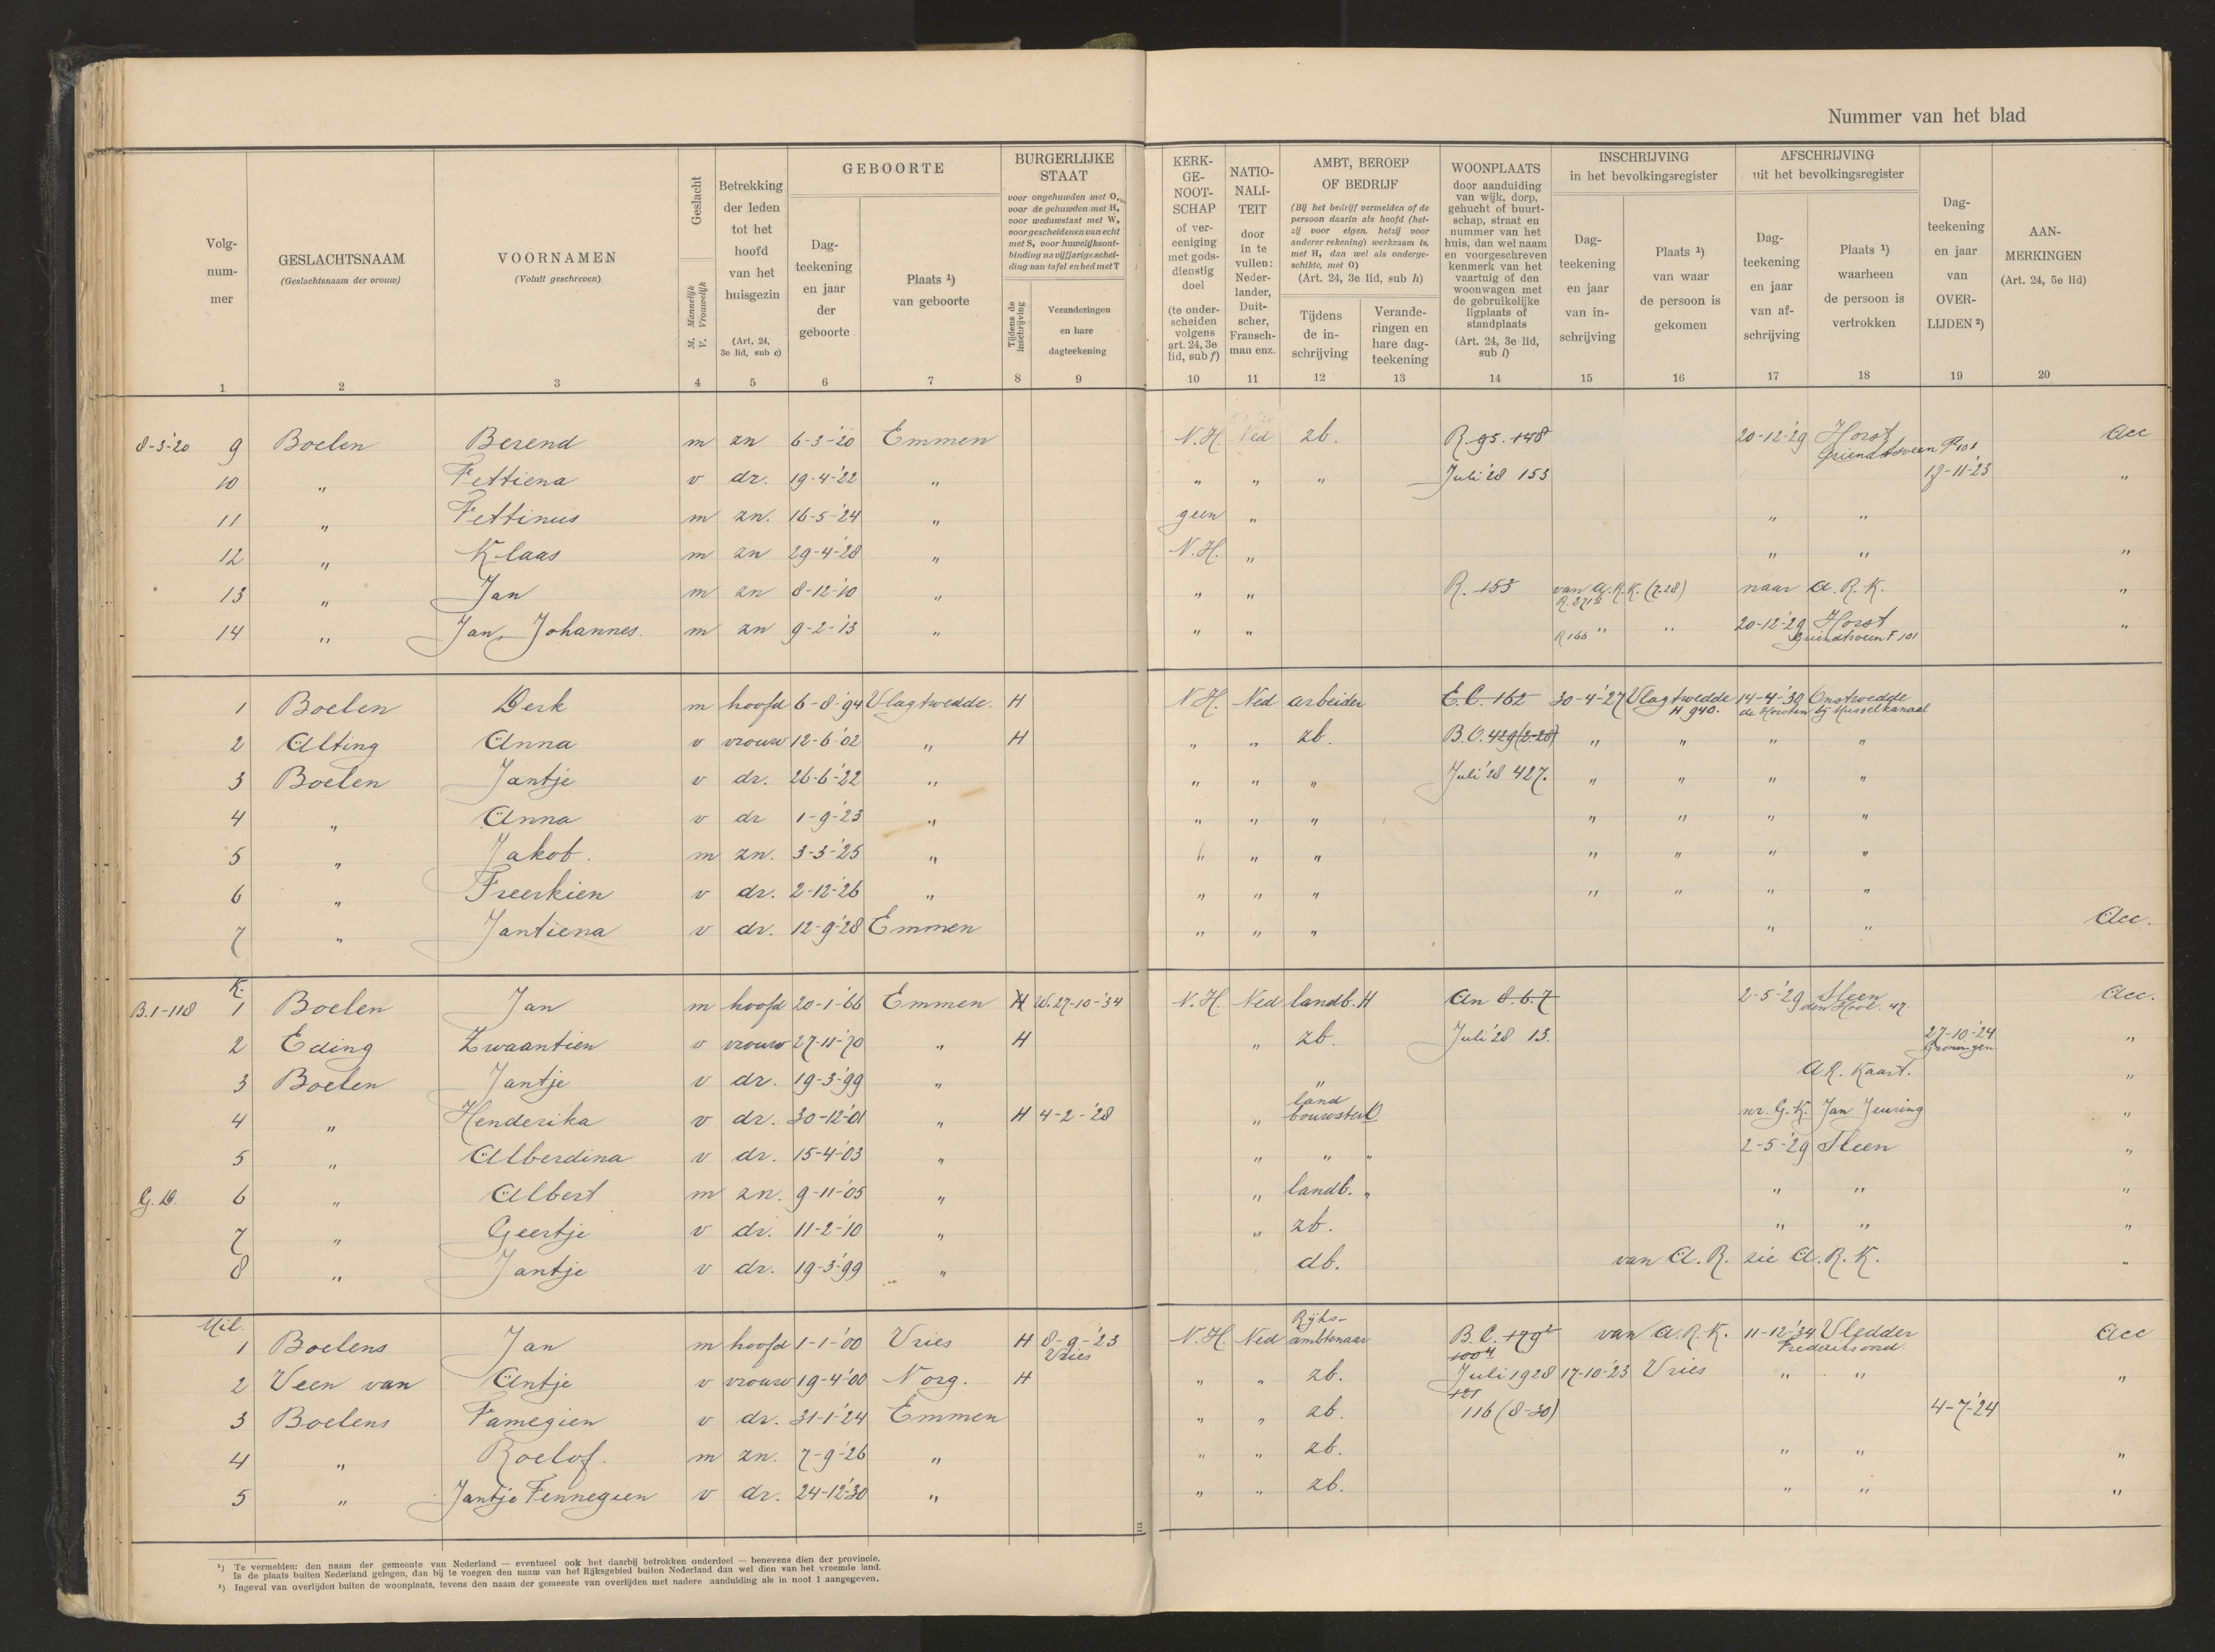 Nummer van het blad
Volg-
num-
mer
GESLACHTSNAAM
(Geslachtsnaam der vrouw)
VOORNAMEN
(Voluit geschreven)
Geslacht
M. Mannelijk
V. Vrouwelijk
Betrekking
der leden
tot het
hoofd
van het
huisgezin
(Art. 24,
3e lid, sub c)
GEBOORTE
Dag-
teekening
en jaar
der
geboorte
Plaats ¹)
van geboorte
BURGERLIJKE
STAAT
voor ongehuwden met O,
voor de gehuwden met H,
voor weduwstaat met W,
voor gescheidenen van echt
met S, voor huwelijksont-
binding na vijfjarige schei-
ding van tafel en bed met T
Tijdens de
inschrijving
Veranderingen
en hare
dagteekening
KERK-
GE-
NOOT-
SCHAP
of ver-
eeniging
met gods-
dienstig
doel
(te onder-
scheiden
volgens
art. 24, 3e
lid, sub f)
NATIO-
NALI-
TEIT
door
in te
vullen:
Neder-
lander,
Duit-
scher,
Fransch-
man enz.
AMBT, BEROEP
OF BEDRIJF
(Bij het bedrijf vermelden of de
persoon daarin als hoofd (het-
zij voor eigen, hetzij voor
anderer rekening) werkzaam is,
met H, dan wel als onderge-
schikte, met O)
(Art. 24, 3e lid, sub h)
Tijdens
de in-
schrijving
Verande-
ringen en
hare dag-
teekening
WOONPLAATS
door aanduiding
van wijk, dorp,
gehucht of buurt-
schap, straat en
nummer van het
huis, dan wel naam
en voorgeschreven
kenmerk van het
vaartuig of den
woonwagen met
de gebruikelijke
ligplaats of
standplaats
(Art. 24, 3e lid,
sub i)
INSCHRIJVING
in het bevolkingsregister
Dag-
teekening
en jaar
van in-
schrijving
Plaats ¹)
van waar
de persoon is
gekomen
AFSCHRIJVING
uit het bevolkingsregister
Dag-
teekening
en jaar
van af-
schrijving
Plaats ¹)
waarheen
de persoon is
vertrokken
Dag-
teekening
en jaar
van
OVER-
LIJDEN ²)
AAN-
MERKINGEN
(Art. 24, 5e lid)
1 2 3 4 5 6 7 8 9 10 11 12 13 14 15 16 17 18 19 20
8-3-'20 9 Boelen Berend m zn 6-3-'20 Emmen N.H. Ned zb. R. 95. 148 20-12-'29 Horst Acc
Griendtsveen F 101
10 " Fettiena v dr. 19-4-'22 " " " " Juli '28 153 "
11 " Fettinus m zn. 16-5-'24 " geen " " "
12 " Klaas m zn 29-4-'28 " N.H. " " " "
13 " Jan m zn 8-12-'10 " " " R. 153 van A.R.K. (7.28) naar A.R.K. "
14 " Jan, Johannes. m zn 9-2-'13 " " " R 166 " " 20-12-'29 Horst "
Griendtsveen F 101
1 Boelen Derk m hoofd 6-8-'94 Vlagtwedde. H N.H. Ned arbeider E.C. 162 30-4-'27 Vlagtwedde 14-4-'30 Onstwedde
H 940. de Horsten bij Musselkanaal
2 Alting Anna v vrouw 12-6-'02 " H " " zb. B.O. 429 (2-28) " " " "
3 Boelen Jantje v dr. 26-6-'22 " " " " Juli '28 427. " " " "
4 " Anna v dr 1-9-'23 " " " " " " " "
5 " Jakob. m zn. 3-3-'25 " " " " " " " "
6 " Freerkien v dr. 2-12-'26 " " " " " " " "
7 " Jantiena v dr. 12-9-'28 Emmen " " " " " Acc.
K.
B.1-118 1 Boelen Jan m hoofd 20-1-'66 Emmen H W. 27-10-'34 N.H. Ned landb. H An 8.6.7 2-5-'29 Sleen Acc.
2 Eding Zwaantien v vrouw 27-11-'70 " H " zb. Juli '28 13. 27-10-'24 "
Groningen
3 Boelen Jantje v dr. 19-3-'99 " " A.R. Kaart. "
4 " Henderika v dr. 30-12-'01 " H 4-2-'28 " land nr. G.K. Jan Jeuring "
5 " Alberdina v dr. 15-4-'03 " " " " 2-5-'29 Sleen "
6 " Albert m zn. 9-11-'05 " " landb. " " " "
7 " Geertje v dr. 11-2-'10 " " zb. " " "
8 " Jantje v dr. 19-3-'99 " db. van A.R. zie A.R.K. "
Mil.
Rijks-
1 Boelens Jan m hoofd 1-1-'00 Vries H 8-9-'23 N.H. Ned ambtenaar B.C. 179² van A.R.K. 11-12-'34 Vledder Acc
Vries Frederiksoord
2 Veen van Antje v vrouw 19-4-'00 Norg. H " " zb. Juli 1928 17-10-'23 Vries " " "
3 Boelens Famegien v dr. 31-1-'24 Emmen " " zb. 116 (8-30) 4-7-'24
4 " Roelof. m zn. 7-9-'26 " " " zb. " " "
5 " Jantje Fennegien v dr. 24-12-'30 " " " zb. " " "
¹) Te vermelden: den naam der gemeente van Nederland — eventueel ook het daarbij betrokken onderdeel — benevens dien der provincie.
Is de plaats buiten Nederland gelegen, dan bij te voegen den naam van het Rijksgebied buiten Nederland dan wel dien van het vreemde land.
²) Ingeval van overlijden buiten de woonplaats, tevens den naam der gemeente van overlijden met nadere aanduiding als in noot 1 aangegeven.